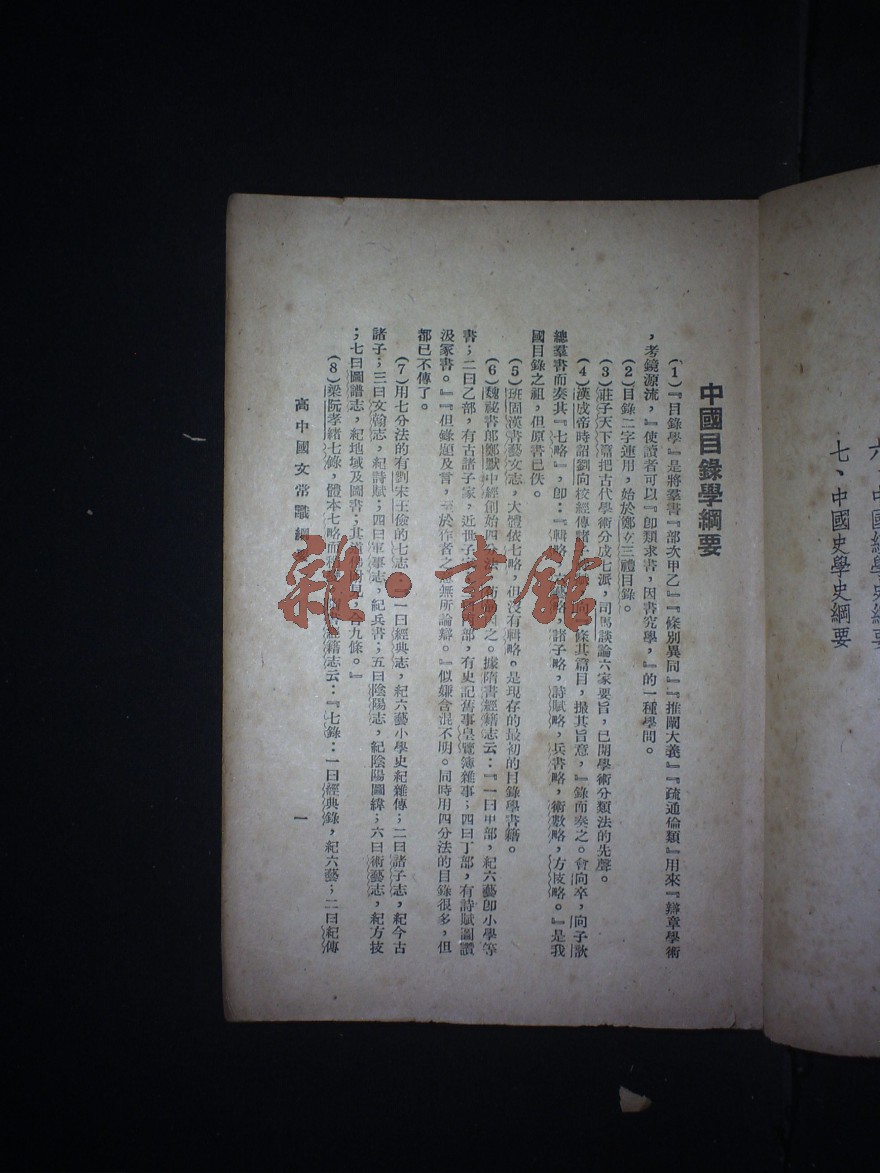 六、中國經學史綱要
七、中國史學史綱要
中國目錄學綱要
(1)『目錄學』是將羣書『部次甲乙』『條別異同』『推闡大義』『疏通倫類』用來『辯章學術
，考鏡源流，』使讀者可以『卽類求書，因書究學，』的一種學問。
(2)目錄二字連用，始於鄭玄三禮目錄。
(3)莊子天下篇把古代學術分成七派，司馬談論六家要旨，已開學術分類法的先聲。
(4)漢成帝時詔劉向校經傳諸 向 條其篇目，撮其旨意，『錄而奏之。會向卒，向子歆
總羣書而奏其『七略』，卽：『輯略， 略，諸子略，詩賦略，兵書略，術數略，方技略。』是我
國目錄之祖，但原書已佚。
(5)班固漢書藝文志，大體依七略，但沒有輯略。是現存的最初的目錄學書籍。
(6)魏祕書郎鄭默中經創始四 法 因之。據隋書經籍志云：『一曰甲部，紀六藝卽小學等
書；二曰乙部，有古諸子家，近世子 部，有史記舊事皇覽簿雜事；四曰丁部，有詩賦圖讚
汲冢書。』『但錄題及言，至於作者之意無所論辯。』似嫌含混不明。同時用四分法的目錄很多，但
都已不傳了。
(7)用七分法的有劉宋王儉的七志 一曰經典志，紀六藝小學史紀雜傳；二曰諸子志，紀今古
諸子；三曰文翰志，紀詩賦；四曰軍事志，紀兵書；五曰陰陽志，紀陰陽圖緯；六曰術藝志，紀方技
；七曰圖譜志，紀地域及圖書；其道佛附見，合九條。』
(8)梁阮孝緒七錄，體本七略而 經籍志云：『七錄：一曰經典錄，紀六藝；二曰紀傳
高中國文常識綱
一
雜·書館